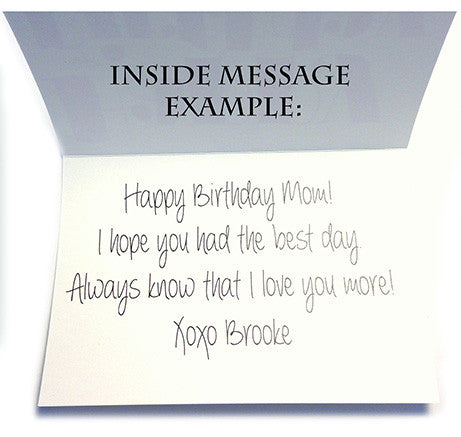 INSIDE MESSAGE
EXAMPLE:
Happy Birthday Mom!
I hope you had the best day.
Always know that I love you more!
Xoxo Brooke